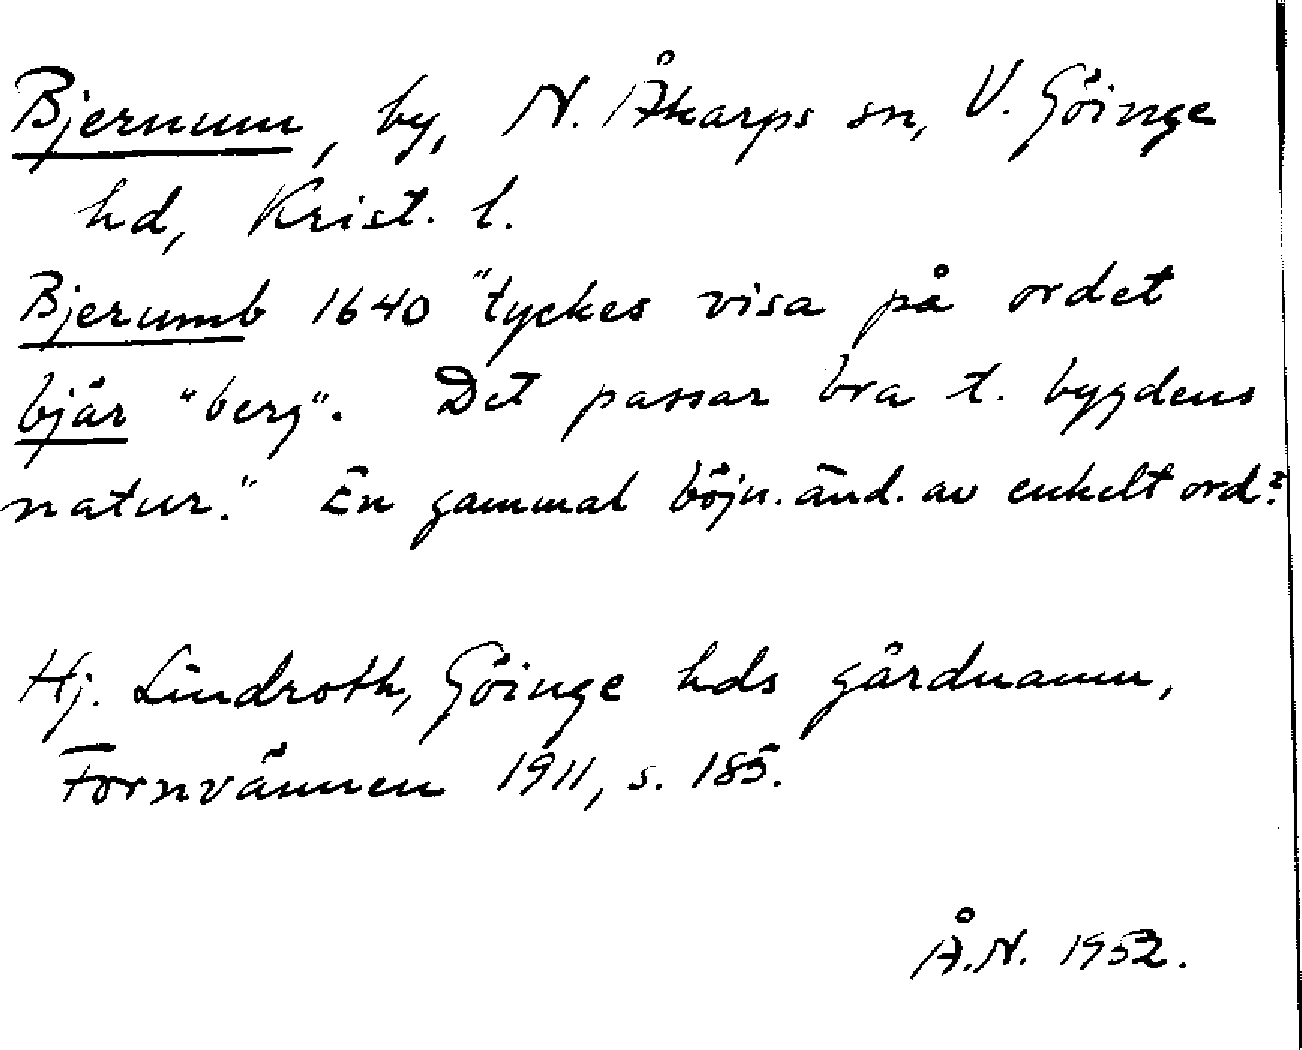 Bjernum, by, N. Åkarps sn, V. Göinge
hd, Krist. l.
Bjerumb 1640 "tyckes visa på ordet
bjär "berg". Det passar bra t. bygdens
natur." En gammal böjn.änd. av enkelt ord?
Hj. Lindroth, Göinge hds gårdnamn,
Fornvännen 1911, s. 185.
Å.N. 1952.